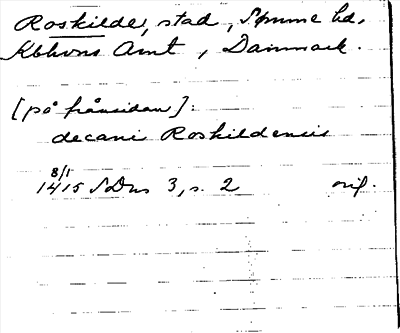 Roskilde, stad, Sømme hd,
Kbhvns Amt, Danmark.
[på frånsidan]:
decani Roskildensis
8/1
1415 SDns 3, s. 2 orig.